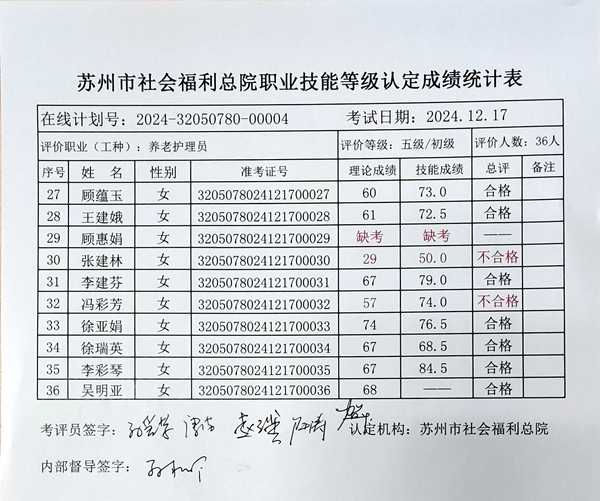 苏州市社会福利总院职业技能等级认定成绩统计表
在线计划号：2024-32050780-00004 考试日期：2024.12.17
评价职业（工种）：养老护理员 评价等级：五级/初级 评价人数：36人
序号 姓 名 性别 准考证号 理论成绩 技能成绩 总评 备注
27 顾蕴玉 女 3205078024121700027 60 73.0 合格
28 王建娥 女 3205078024121700028 61 72.5 合格
29 顾惠娟 女 3205078024121700029 缺考 缺考 ——
30 张建林 女 3205078024121700030 29 50.0 不合格
31 李建芬 女 3205078024121700031 67 79.0 合格
32 冯彩芳 女 3205078024121700032 57 74.0 不合格
33 徐亚娟 女 3205078024121700033 74 76.5 合格
34 徐瑞英 女 3205078024121700034 67 68.5 合格
35 李彩琴 女 3205078024121700035 67 84.5 合格
36 吴明亚 女 3205078024121700036 68 —— 合格
考评员签字： 认定机构：苏州市社会福利总院
内部督导签字：